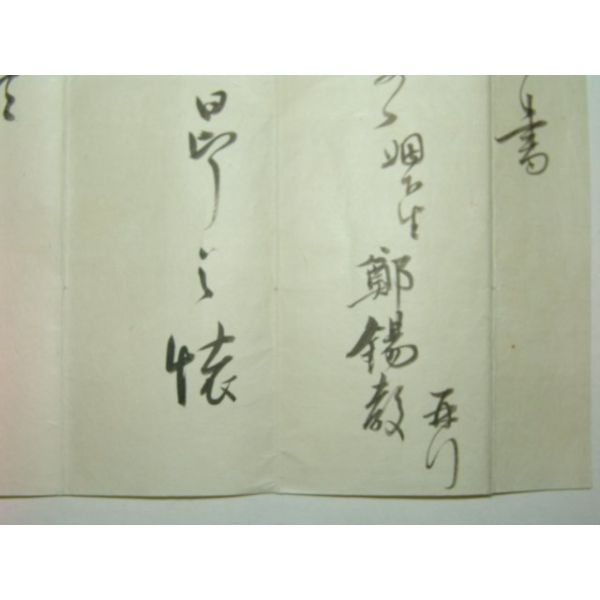 書
姻下生 鄭錫敎
再拜
昻之懷